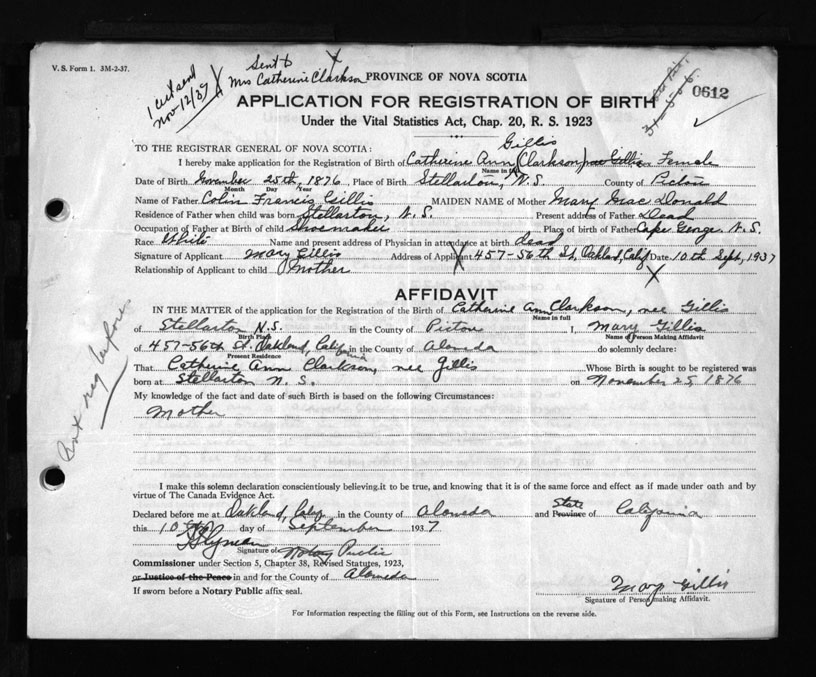 V. S. Form 1. 3M-2-37.
Sent to
Mrs Catherine Clarkson
1 cert send
Nov-12/37
X
PROVINCE OF NOVA SCOTIA
APPLICATION FOR REGISTRATION OF BIRTH
Under the Vital Statistics Act, Chap. 20, R. S. 1923
0612
TO THE REGISTRAR GENERAL OF NOVA SCOTIA:
Gillis
I hereby make application for the Registration of Birth of Catherine Ann (Clarkson) nee Gillis Female
Name in full
Date of Birth November 25th, 1876 Place of Birth Stellarton, N.S. County of Pictou
Month Day Year
Name of Father Colin Francis Gillis MAIDEN NAME of Mother Mary MacDonald
Residence of Father when child was born Stellarton, N.S. Present address of Father Dead
Occupation of Father at Birth of child Shoemaker Place of birth of Father Cape George N.S.
Race White Name and present address of Physician in attendance at birth dead
Signature of Applicant Mary Gillis Address of Applicant 457-56th St. Oakland, Calif Date 10th Sept, 1937
Relationship of Applicant to child Mother X
AFFIDAVIT
IN THE MATTER of the application for the Registration of the Birth of Catherine Ann Clarkson, nee Gillis
Name in full
of Stellarton N.S. in the County of Pictou I, Mary Gillis
Birth Place Name of Person Making Affidavit
of 457-56th St. Oakland, California in the County of Alameda do solemnly declare:
Present Residence
That Catherine Ann Clarkson, nee Gillis Whose Birth is sought to be registered was
born at Stellarton N.S. on November 25, 1876
My knowledge of the fact and date of such Birth is based on the following Circumstances:
Mother
Not reg before
I make this solemn declaration conscientiously believing it to be true, and knowing that it is of the same force and effect as if made under oath and by
virtue of The Canada Evidence Act.
Declared before me at Oakland, Calif. in the County of Alameda and State Province of California
this 10th day of September 1937
Signature of Notary Public
Commissioner under Section 5, Chapter 38, Revised Statutes, 1923,
or Justice of the Peace in and for the County of Alameda
If sworn before a Notary Public affix seal.
Mary Gillis
Signature of Person making Affidavit.
For Information respecting the filling out of this Form, see Instructions on the reverse side.